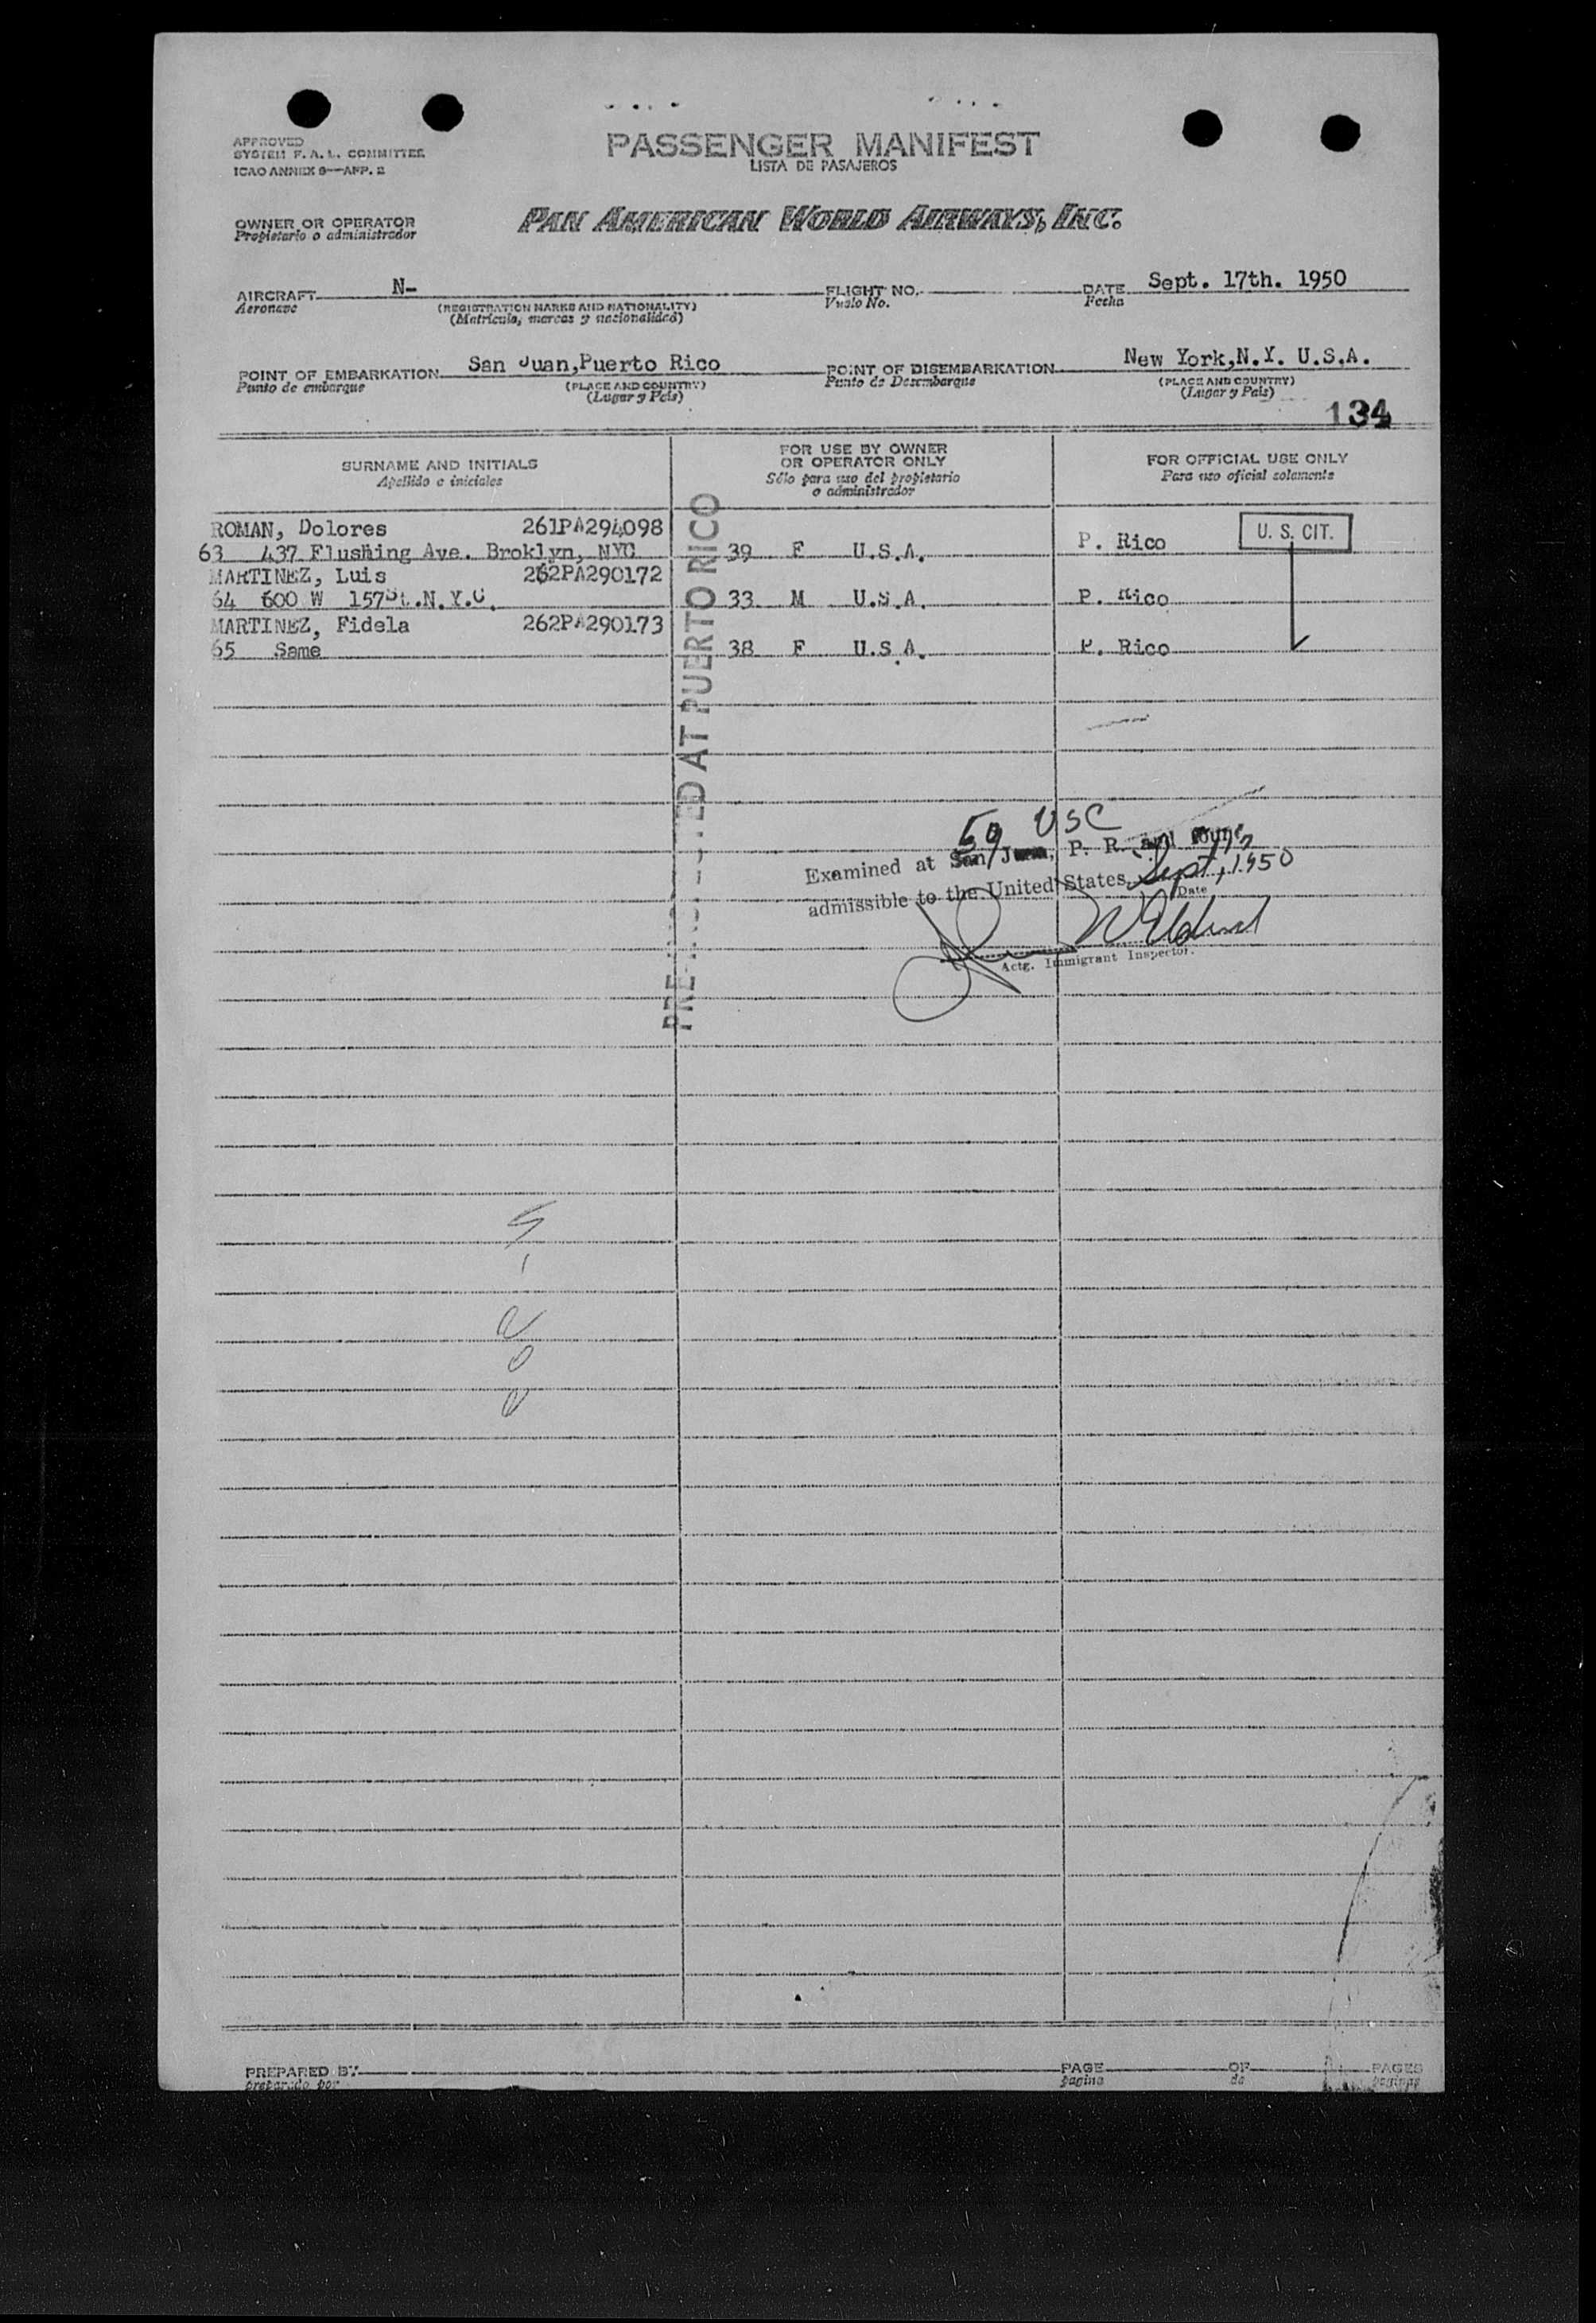 APPROVED
SYSTEM F. A. L. COMMITTEE
ICAO ANNEX 9—APP. 2
PASSENGER MANIFEST
LISTA DE PASAJEROS
OWNER OR OPERATOR
Propietario o administrador
PAN AMERICAN WORLD AIRWAYS, INC.
AIRCRAFT N- FLIGHT NO. DATE Sept. 17th. 1950
Aeronave (REGISTRATION MARKS AND NATIONALITY) Vuelo No. Fecha
(Matricula, marcas y nacionalidad)
POINT OF EMBARKATION San Juan,Puerto Rico POINT OF DISEMBARKATION New York,N.Y. U.S.A.
Punto de embarque (PLACE AND COUNTRY) Punto de Desembarque (PLACE AND COUNTRY)
(Lugar y Pais) (Lugar y Pais)
134
SURNAME AND INITIALS
Apellido e iniciales
FOR USE BY OWNER
OR OPERATOR ONLY
Sólo para uso del propietario
o administrador
FOR OFFICIAL USE ONLY
Para uso oficial solamente
ROMAN, Dolores 261PA294098 U. S. CIT.
63 437 Flushing Ave. Broklyn, NYC 39 F U.S.A. P. Rico
MARTINEZ, Luis 262PA290172
64 600 W 157St.N.Y.C. 33 M U.S.A. P. Rico
MARTINEZ, Fidela 262PA290173
65 Same 38 F U.S.A. P. Rico
AT PUERTO RICO
USC
Examined at San Juan, P. R. and found
admissible to the United States Sept, 1950
Date
Actg. Immigrant Inspector.
PREPARED BY PAGE OF PAGES
preparado por pagina de paginas